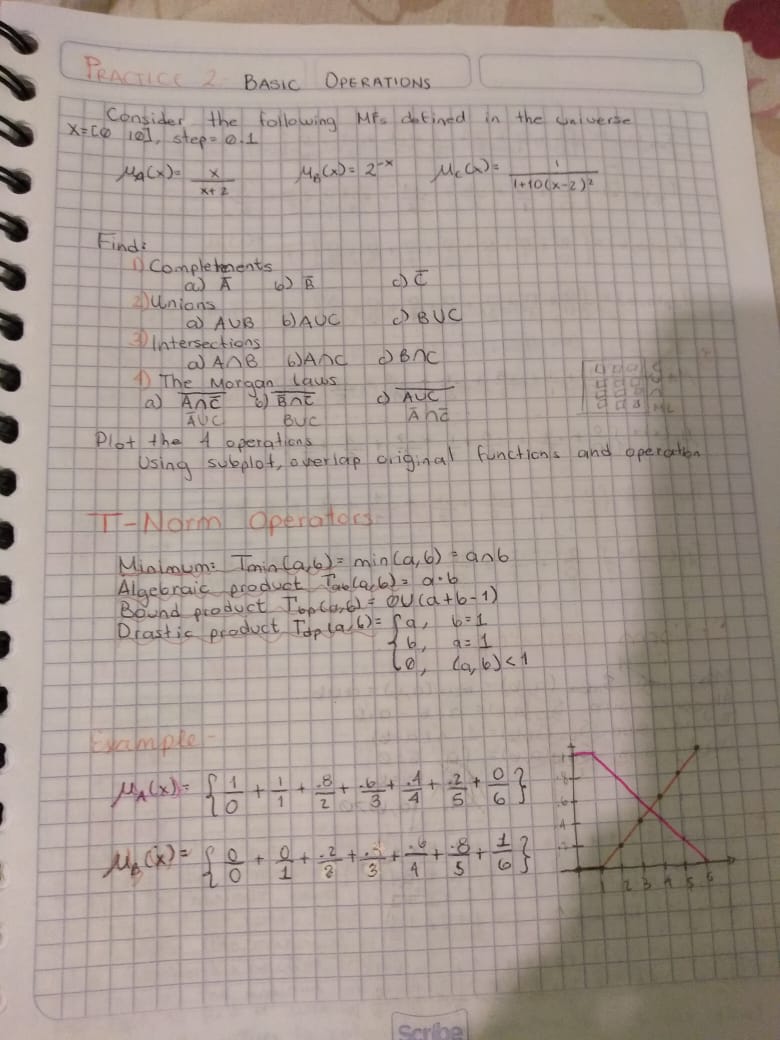 PRACTICE 2 BASIC OPERATIONS
Consider the following MFs defined in the universe
X=[0 10], step=0.1
μA(x)= x/(x+2) μB(x)= 2^-x μC(x)= 1/(1+10(x-2)²)
Find:
1) Complements
a) Ā b) B̄ c) C̄
2) Unions
a) A∪B b) A∪C c) B∪C
3) Intersections
a) A∩B b) A∩C c) B∩C
4) The Morgan Laws
a) A∩C̄ b) B∩C̄ c) A∪C
Ā∪C B∪C Ā∩C̄
Plot the 4 operations
Using subplot, overlap original functions and operation
T-Norm Operators
Minimum: Tmin(a,b)= min(a,b) = a∩b
Algebraic product Tab(a,b)= a·b
Bound product Tbp(a,b)= 0∪(a+b-1)
Drastic product Tdp(a,b)= { a, b=1
b, a=1
0, (a,b)<1
Example-
μA(x)= {1/0 + 1/1 + .8/2 + .6/3 + .4/4 + .2/5 + 0/6}
μB(x)= {0/0 + 0/1 + .2/2 + /3 + .6/4 + .8/5 + 1/6}
1
.8
.6
.4
.2
1 2 3 4 5 6
Scribe